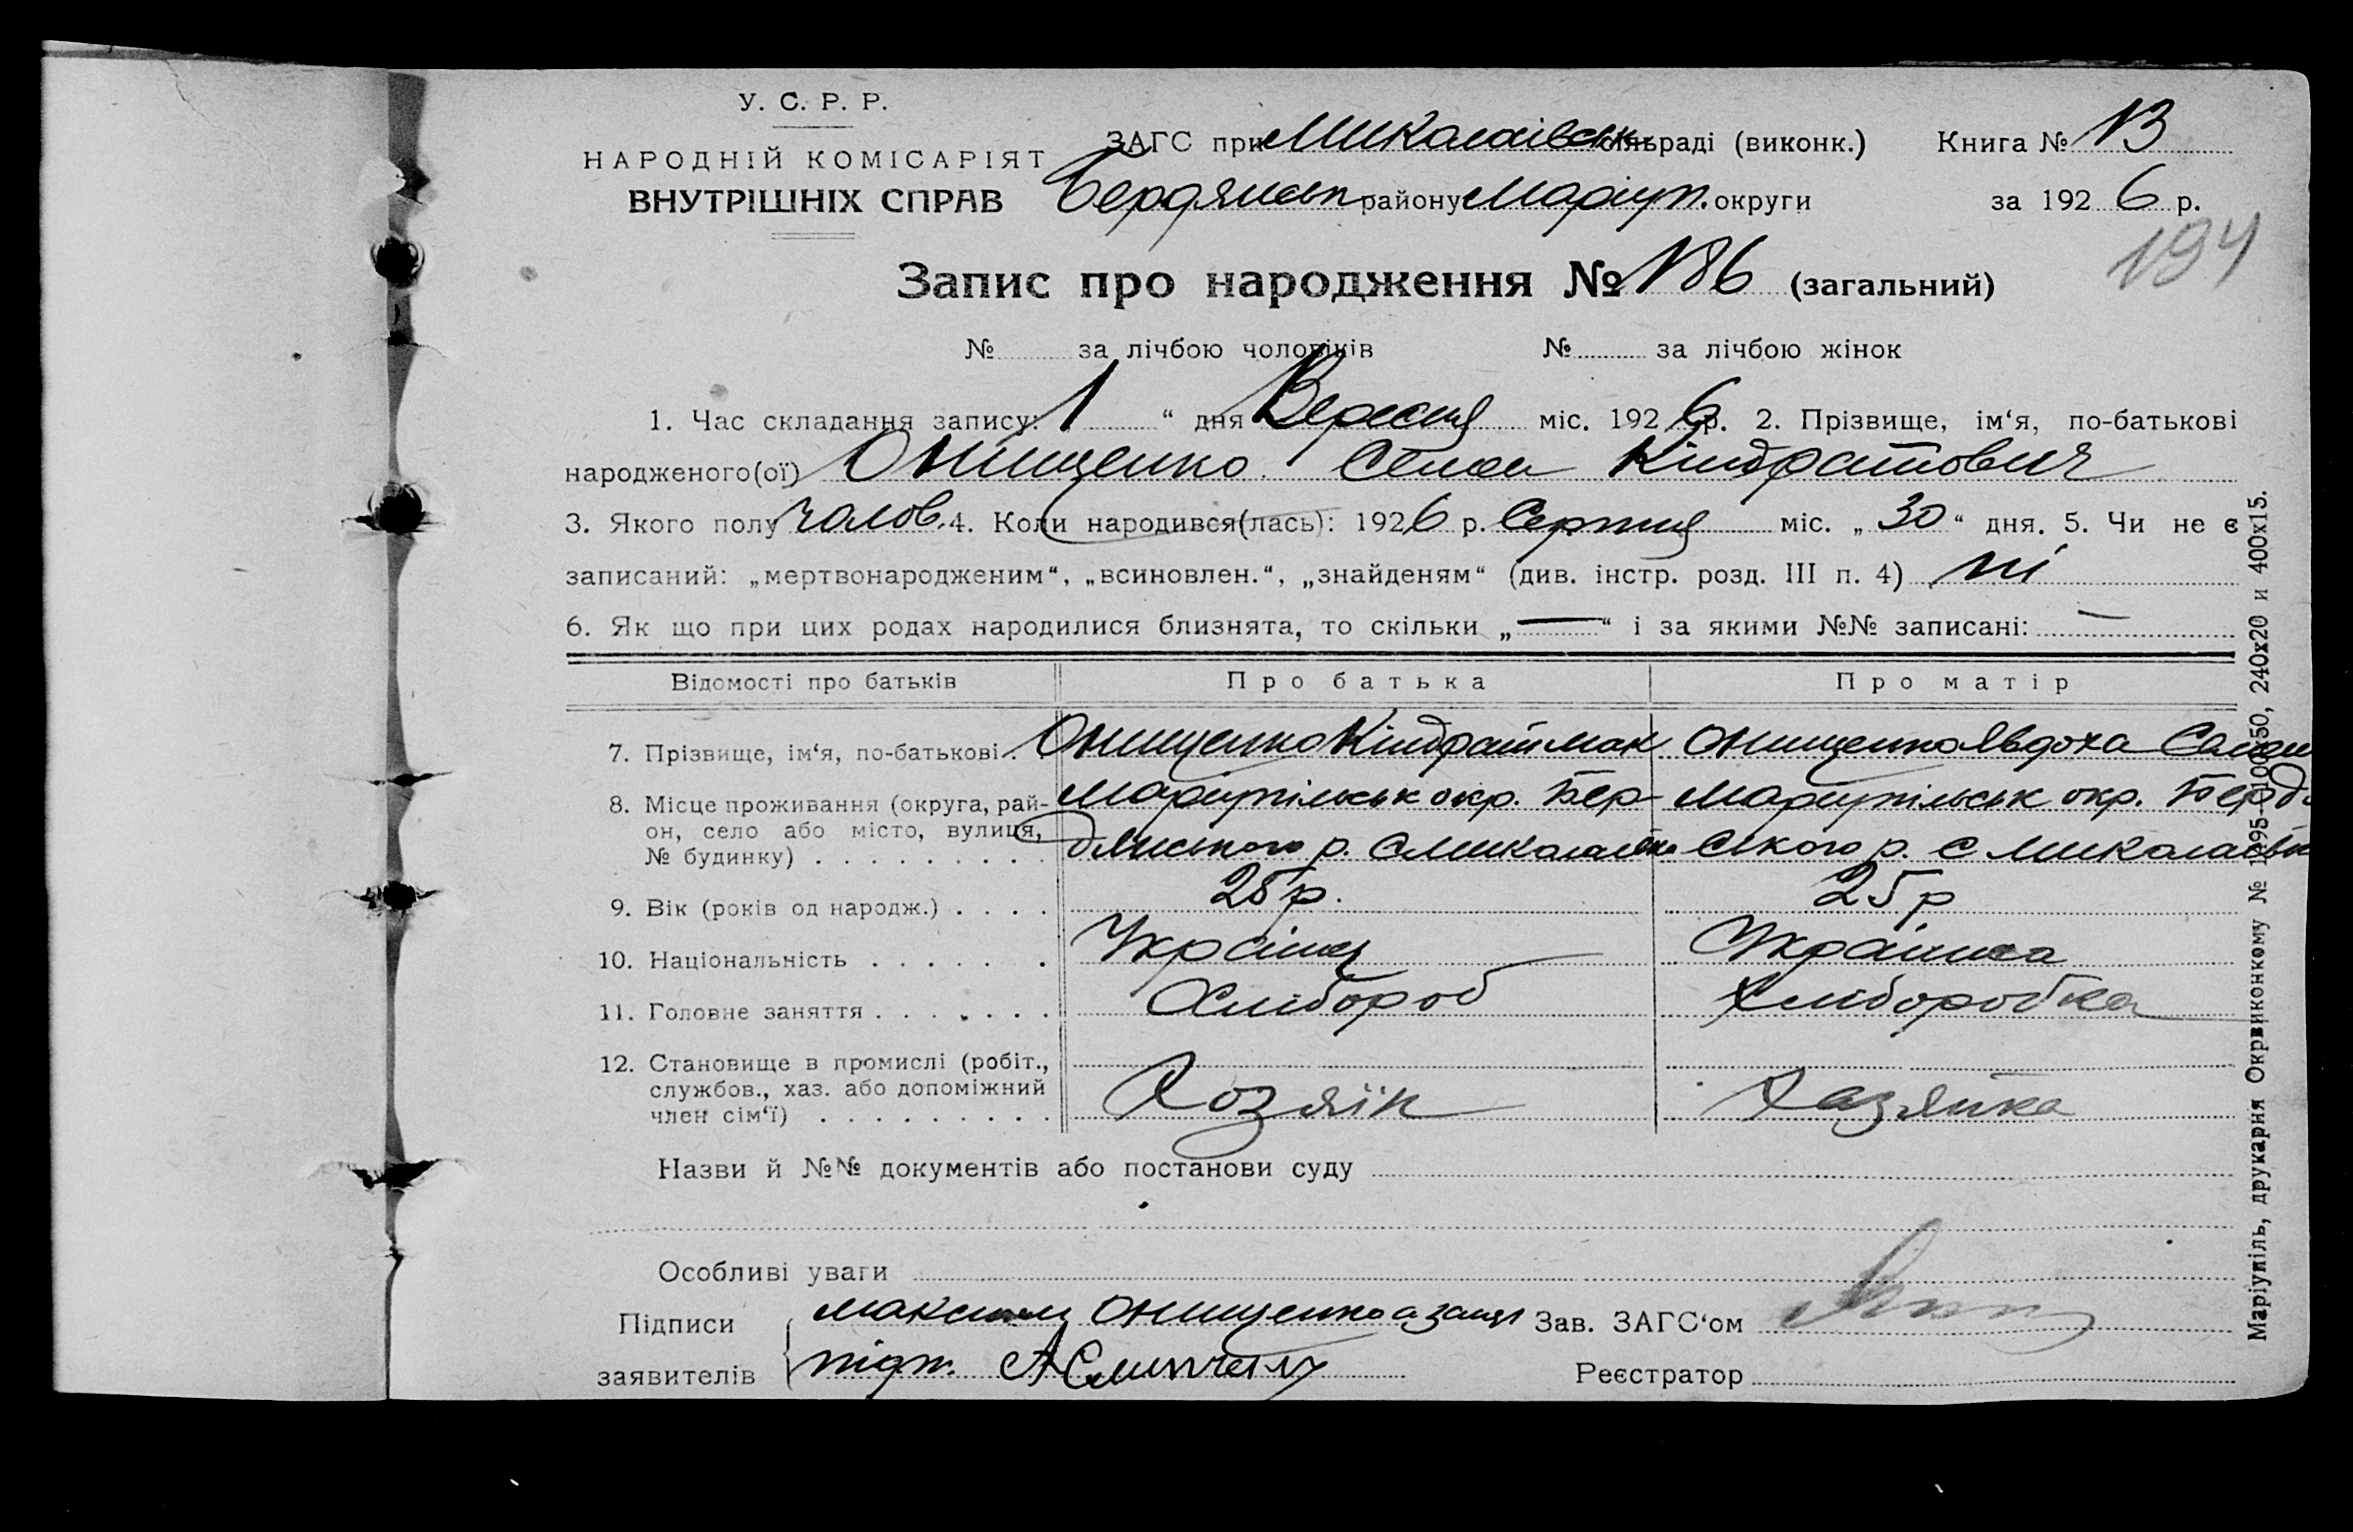 У. С. Р. Р.
НАРОДНІЙ КОМІСАРІЯТ
ВНУТРІШНІХ СПРАВ
ЗАГС при Миколаївськ сільраді (виконк.) Книга № 13
Бердянськ району Маріуп. округи за 1926 р.
194
Запис про народження № 186 (загальний)
№ за лічбою чоловіків № за лічбою жінок
1. Час складання запису: 1 " дня Вересня міс. 1926 р. 2. Прізвище, ім'я, по-батькові
народженого(ої) Онищенко Семен Кіндратович
3. Якого полу чолов. 4. Коли народився(лась): 1926 р. Серпня міс. „30" дня. 5. Чи не є
записаний: „мертвонародженим", „всиновлен.", „знайденям" (див. інстр. розд. III п. 4) ні
6. Як що при цих родах народилися близнята, то скільки „—" і за якими №№ записані: —
Відомості про батьків Про батька Про матір
7. Прізвище, ім'я, по-батькові . Онищенко Кіндрат Мак Онищенко Явдоха
8. Місце проживання (округа, рай- Маріупільськ окр. Бер- Маріупільськ окр. Бердя
он, село або місто, вулиця, дянського р. с Миколаївка ського р. с Миколаївк
№ будинку) . . . . . . . . .
9. Вік (років од народж.) . . . . 25 р. 25 р
10. Національність . . . . . . . Українец Українка
11. Головне заняття . . . . . . . Хлібороб Хліборобка
12. Становище в промислі (робіт.,
службов., хаз. або допоміжний Хозяїн Хазяйка
член сім'ї) . . . . . . . . .
Назви й №№ документів або постанови суду
Особливі уваги
Підписи Максим Онищенко а за Зав. ЗАГС'ом
заявителів підп. Реєстратор
Маріупіль, друкарня Окрвиконкому № 240х20 и 400х15.